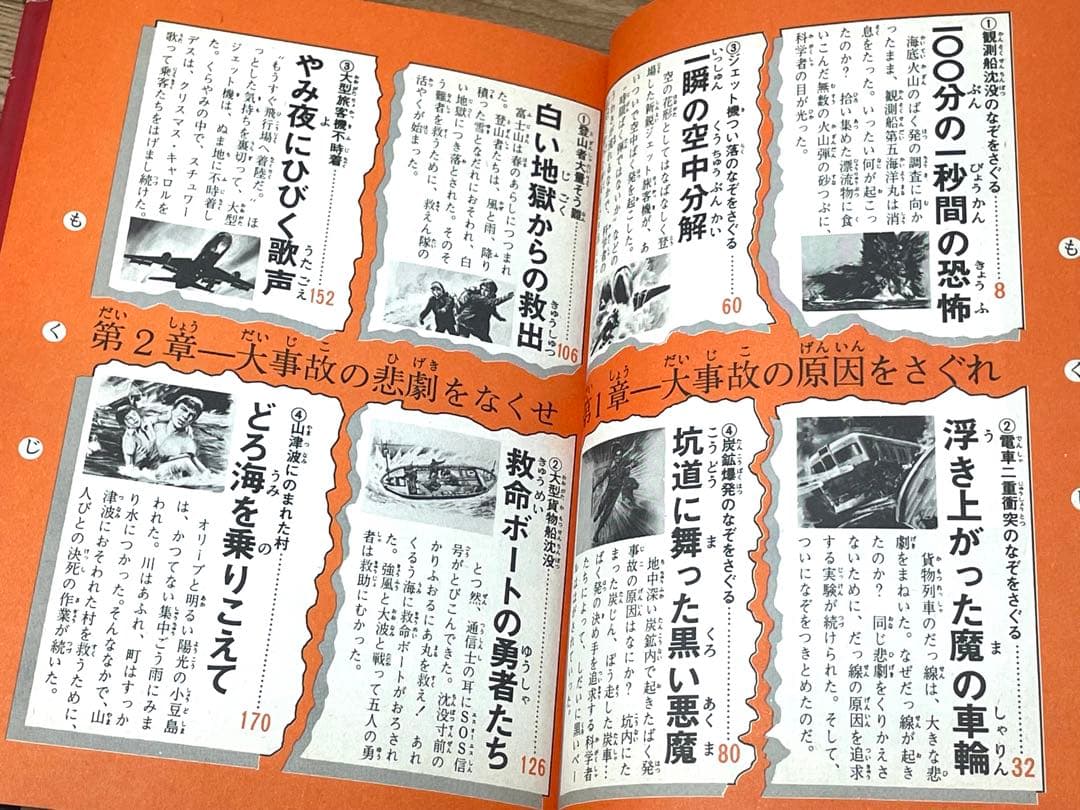 もくじ
第1章―大事故の原因をさぐれ
①観測船沈没のなぞをさぐる
一〇〇分の一秒間の恐怖
8
海底火山のばく発の調査に向か
ったまま、観測船第五海洋丸は消
息をたった。いったい何が起こっ
たのか？ 拾い集めた漂流物に食
いこんだ無数の火山弾の砂つぶに、
科学者の目が光った。
②電車二重衝突のなぞをさぐる
浮き上がった魔の車輪
32
貨物列車のだっ線は、大きな悲
劇をまねいた。なぜだっ線が起き
たのか？ 同じ悲劇をくりかえさ
ないために、だっ線の原因を追求
する実験が続けられた。そして、
ついになぞをつきとめたのだ。
③ジェット機つい落のなぞをさぐる
一瞬の空中分解
60
空の花形としてはなばなしく登
場した新鋭ジェット旅客機が、あ
いついで空中ばく発を起こした。
④炭鉱爆発のなぞをさぐる
坑道に舞った黒い悪魔
80
地中深い炭鉱内で起きたばく発
事故の原因はなにか？ 坑内にた
まった炭じん、ぼう走した炭車…
ばく発の決め手を追求する科学者
たちによって、しだいに黒いベー
第2章―大事故の悲劇をなくせ
①登山者大量そう難
白い地獄からの救出
106
富士山は春のあらしにつつまれ
た。登山者たちは、風と雨、降り
積った雪となだれにおそわれ、白
い地獄につき落とされた。そのそ
う難者を救うために、救えん隊の
活やくが始まった。
②大型貨物船沈没
救命ボートの勇者たち
126
とつ然、通信士の耳にSOS信
号がとびこんできた。沈没寸前の
かりふおるにあ丸を救え！ あれ
くるう海に救命ボートがおろされ
た。強風と大波と戦って五人の勇
者は救助にむかった。
③大型旅客機不時着
やみ夜にひびく歌声
152
“もうすぐ飛行場へ着陸だ。 ほ
っとした気持ちを裏切って、大型
ジェット機は、ぬま地に不時着し
た。くらやみの中で、スチュワー
デスは、クリスマス・キャロルを
歌って乗客たちをはげまし続けた。
④山津波にのまれた村
どろ海を乗りこえて
170
オリーブと明るい陽光の小豆島
は、かつてない集中ごう雨にみま
われた。川はあふれ、町はすっか
り水につかった。そんななかで、山
津波におそわれた村を救うために、
人びとの決死の作業が続いた。